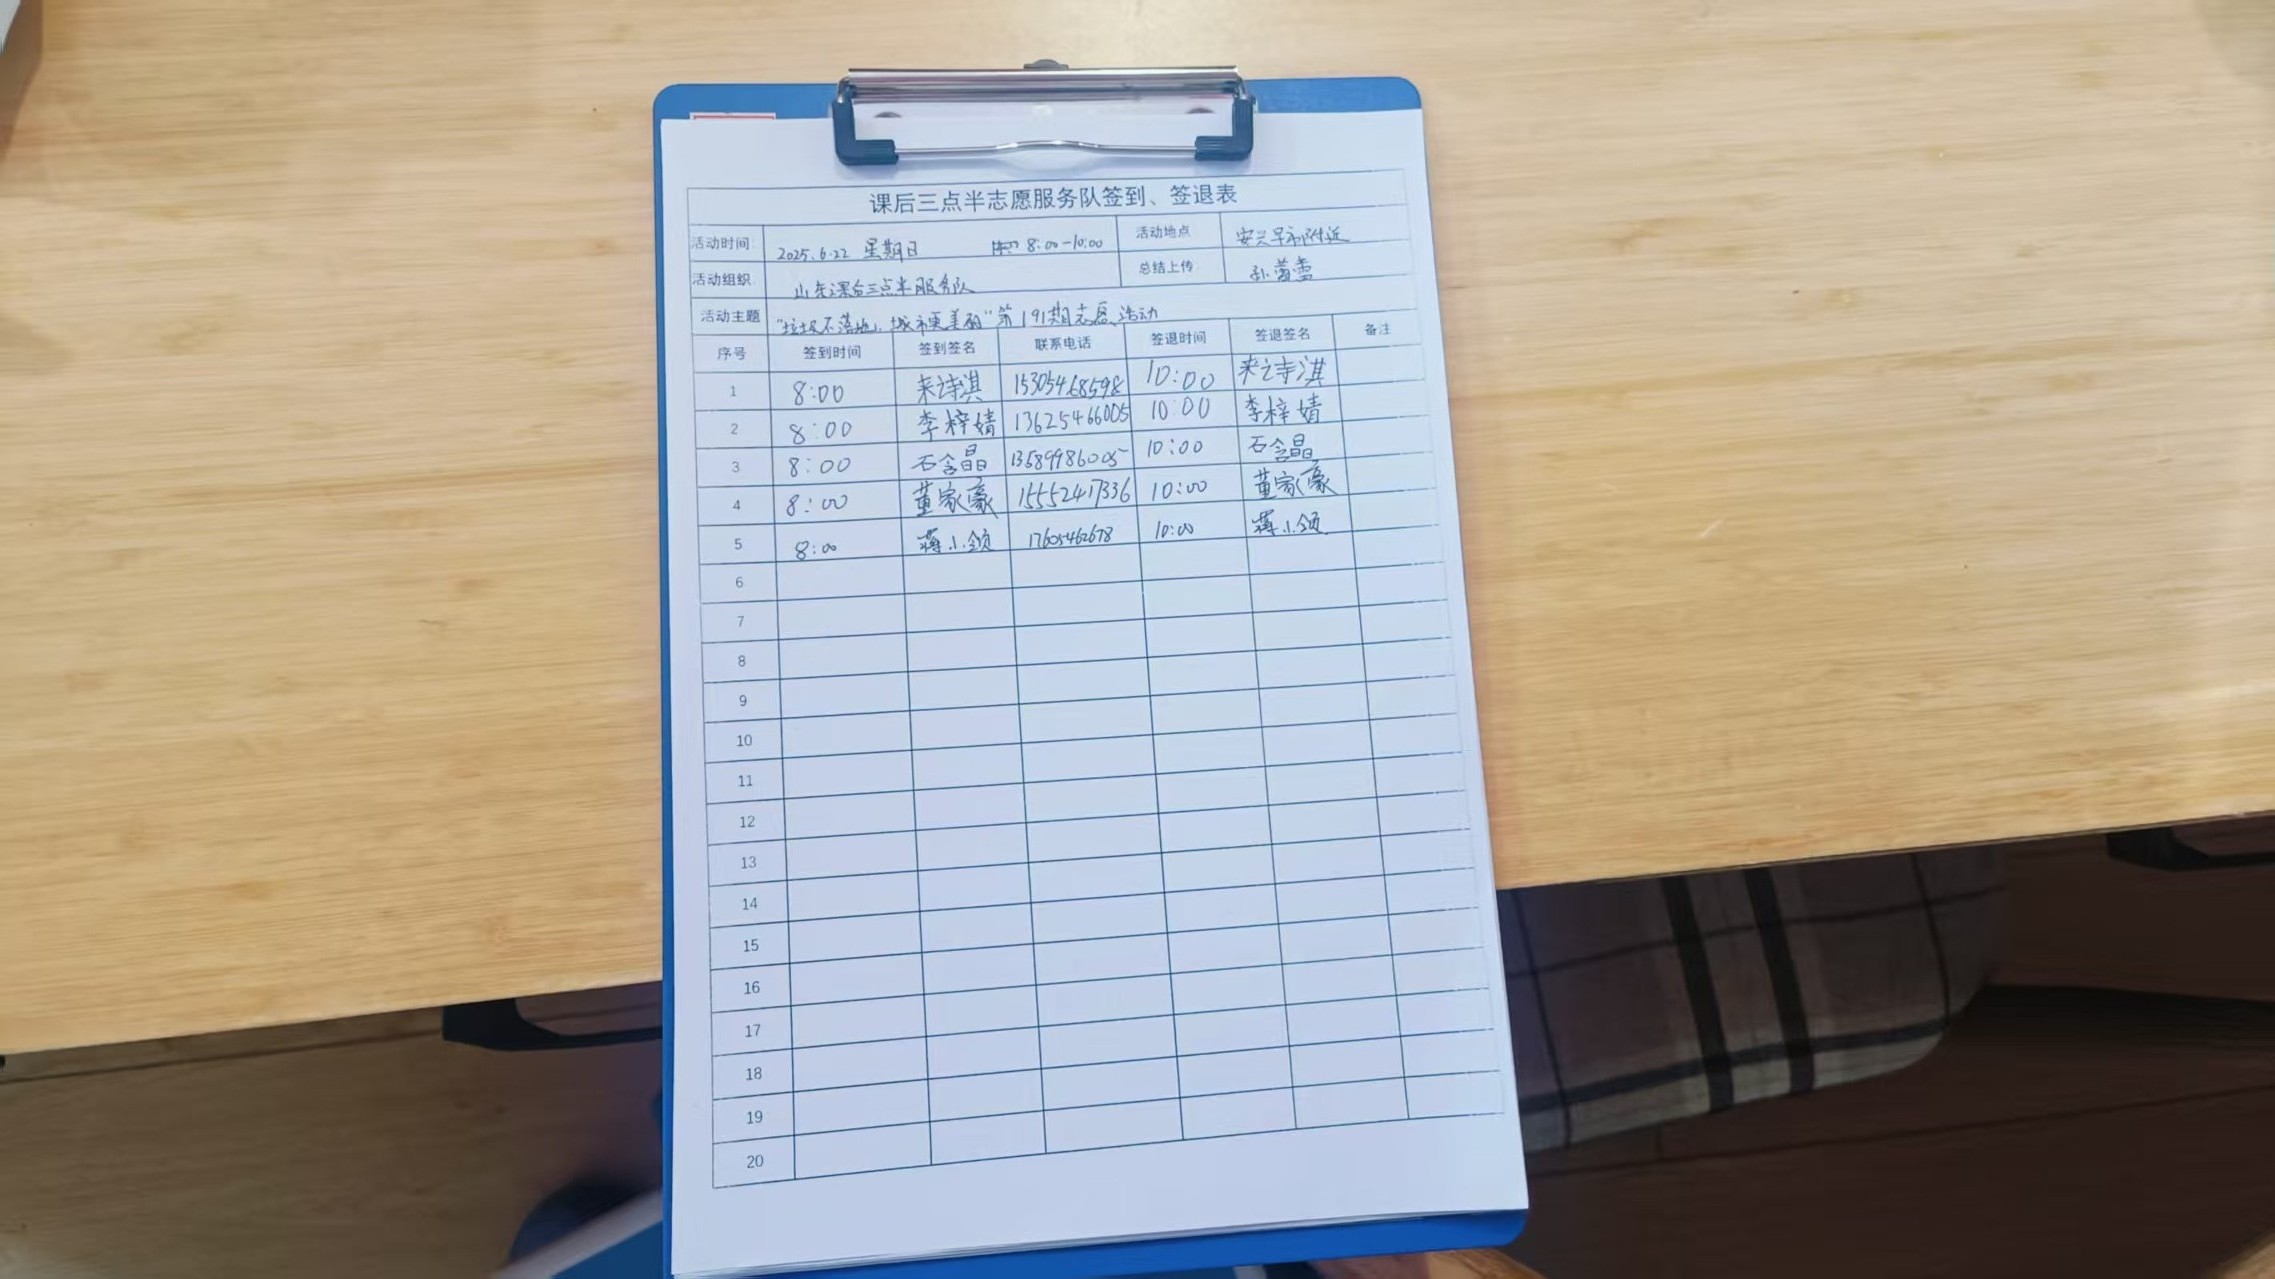 课后三点半志愿服务队签到、签退表
活动时间: 2025.6.22 星期日 8:00-10:00 活动地点 安兴早市附近
活动组织 山东课后三点半服务队 总结上传 孙
活动主题 "垃圾不落地,城市更美丽"第191期志愿活动
序号 签到时间 签到签名 联系电话 签退时间 签退签名 备注
1 8:00 来诗淇 15305468598 10:00 来诗淇
2 8:00 李梓婧 13625466005 10:00 李梓婧
3 8:00 石含晶 13589986005 10:00 石含晶
4 8:00 董家豪 15552417336 10:00 董家豪
5 8:00 蒋小领 17605462678 10:00 蒋小领
6
7
8
9
10
11
12
13
14
15
16
17
18
19
20